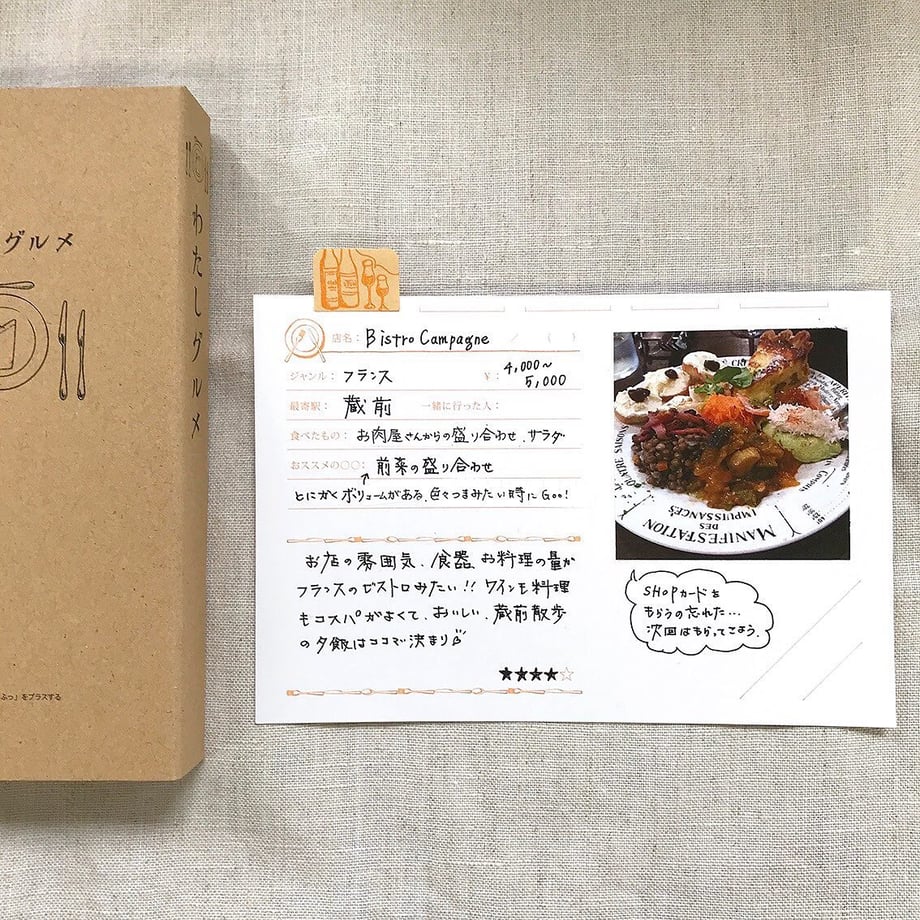 グルメ
わたしグルメ
ぷっ」をプラスする
店名: Bistro Campagne / ( )
ジャンル: フランス ¥: 4,000〜
5,000
最寄駅: 蔵前 一緒に行った人:
食べたもの: お肉屋さんからの盛り合わせ、サラダ
おススメの〇〇: 前菜の盛り合わせ
↑
とにかくボリュームがある、色々つまみたい時にGoo!
お店の雰囲気、食器、お料理の量が
フランスのビストロみたい!! ワインも料理
もコスパがよくて、おいしい、蔵前散歩
の夕飯はココで決まり
★★★★☆
MANIFESTATION
DES
IMPUISSANCES
SHOPカードを
もらうの忘れた…
次回はもらってこよう.